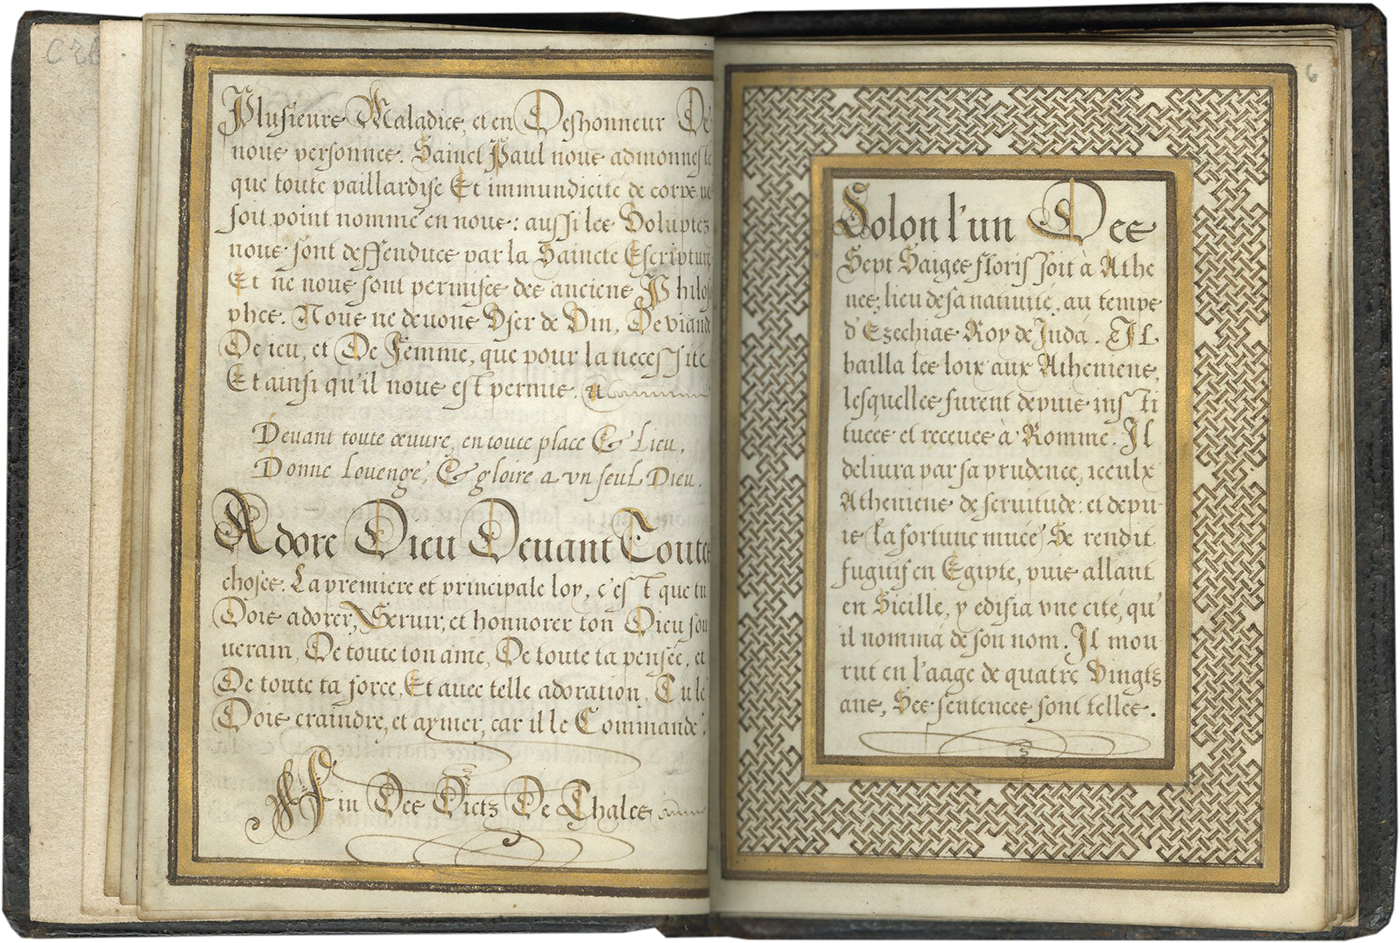 Plusieurs Maladies, et en Deshonneur De
nous personnes. Sainct Paul nous admonneste
que toute paillardise Et immundicite de corps ne
soit point nomme en nous: aussi les Voluptez
nous sont deffendues par la Saincte Escripture
Et ne nous sont permises des anciens Philoso
phes. Nous ne deuons Vser de Vin, De viande
De ieu, et De Femme, que pour la necessite
Et ainsi qu'il nous est permis.
Deuant toute œuure, en toute place & Lieu,
Donne Louenge, & gloire a vn seul Dieu.
Adore Dieu Deuant Toutes
choses. La premiere et principale loy, c'est que tu
Dois adorer, Seruir, et honnorer ton Dieu sou
uerain, De toute ton ame, De toute ta pensée, et
De toute ta force, Et auec telle adoration, Tu le
Dois craindre, et aymer, car il le Commande.
Fin Des Dictz De Chales
CRB
6
Solon l'un Des
Sept Saiges florissoit à Athe
nes, lieu de sa natiuité, au temps
d'Ezechias Roy de Juda. IL
bailla les loix aux Atheniens,
lesquelles furent depuis insti
tuées et receues à Romme. Il
deliura par sa prudence, iceulx
Atheniens de seruitude: et depu-
is la fortune muée Se rendit
fugitif en Egipte, puis allant
en Sicille, y edifia vne cité, qu'
il nomma de son nom. Il mou
rut en l'aage de quatre Vingts
ans, Ses sentences sont telles.